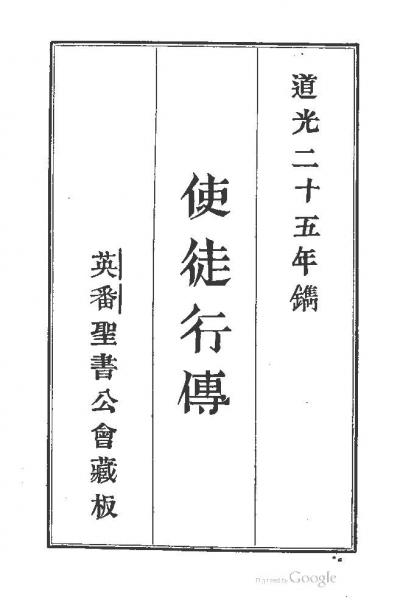 道光二十五年鐫
使徒行傳
英番聖書公會藏板
Digitized by Google